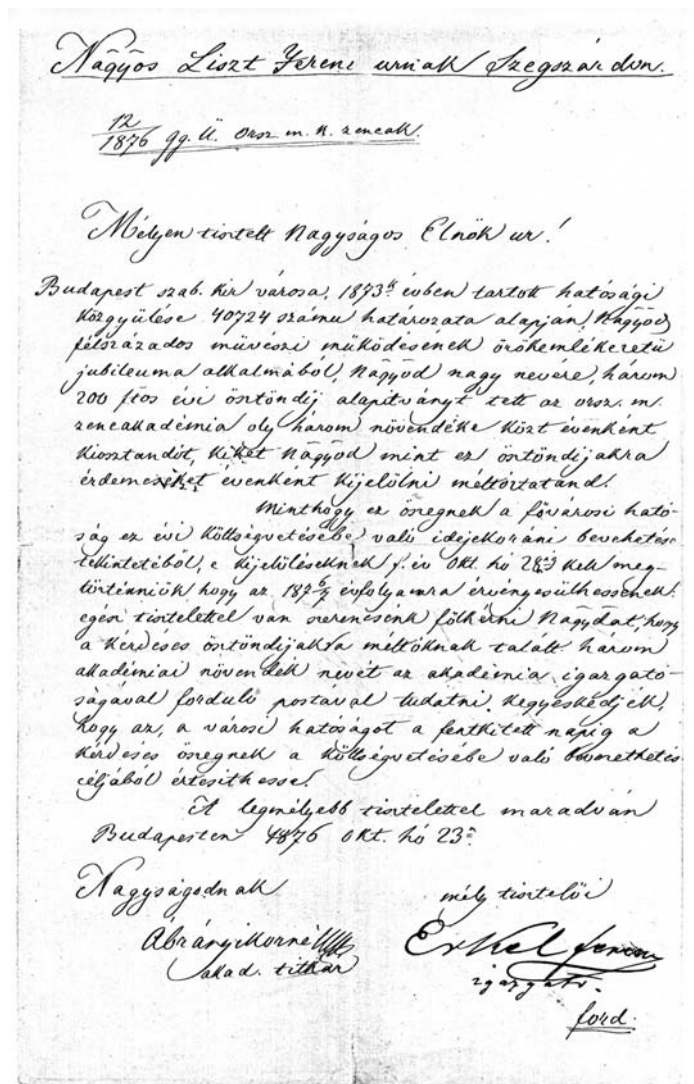 Nāgȳos Liszt Ferenc urnak Szegszárdon.
12
1876 gg. ü. orsz. m. k. zeneak.
Mélyen tisztelt Nagyságos Elnök ur!
Budapest szab. kir városa, 1873ik évben tartott hatósági
közgyülése 40724 számu határozata alapján, Nāgȳod
félszázados müvészi müködésenek örökemlékezetü
jubileuma alkalmából, Nāgȳod nagy nevére, három
200 ftos évi ösztöndij alapitványt tett az orsz. m.
zeneakadémia oly három növendéke közt évenként
kiosztandót, kiket Nāgȳod mint ez ösztöndijakra
érdemeseket évenként kijelölni méltóztatand.
Minthogy ez öszegnek a fővárosi ható-
ság ez évi költségvetésébe való idejekoráni bevehetése
tekintetéből, e kijelöléseknek f. év okt. hó kell meg-
történniök hogy az 1876/7 évfolyamra érvényesülhessenek:
egész tisztelettel van szerencsénk fölkérni Nāgȳdat, hogy
a kérdéses ösztöndijakra méltóknak talált három
akadémiai növendék nevét az akadémia igazgató-
ságával forduló postával tudatni kegyeskedjék,
hogy az, a városi hatóságot a fentkitett napig a
kérdéses öszegnek a költségvetésébe való bevehetés
céljából értesithesse.
A legmélyebb tisztelettel maradván
Budapesten 1876 okt. hó 23án
Nagyságodnak
mély tisztelői
Ábrányi Kornél
akad. titkár
Erkel Ferenc
igazgató.
ford.